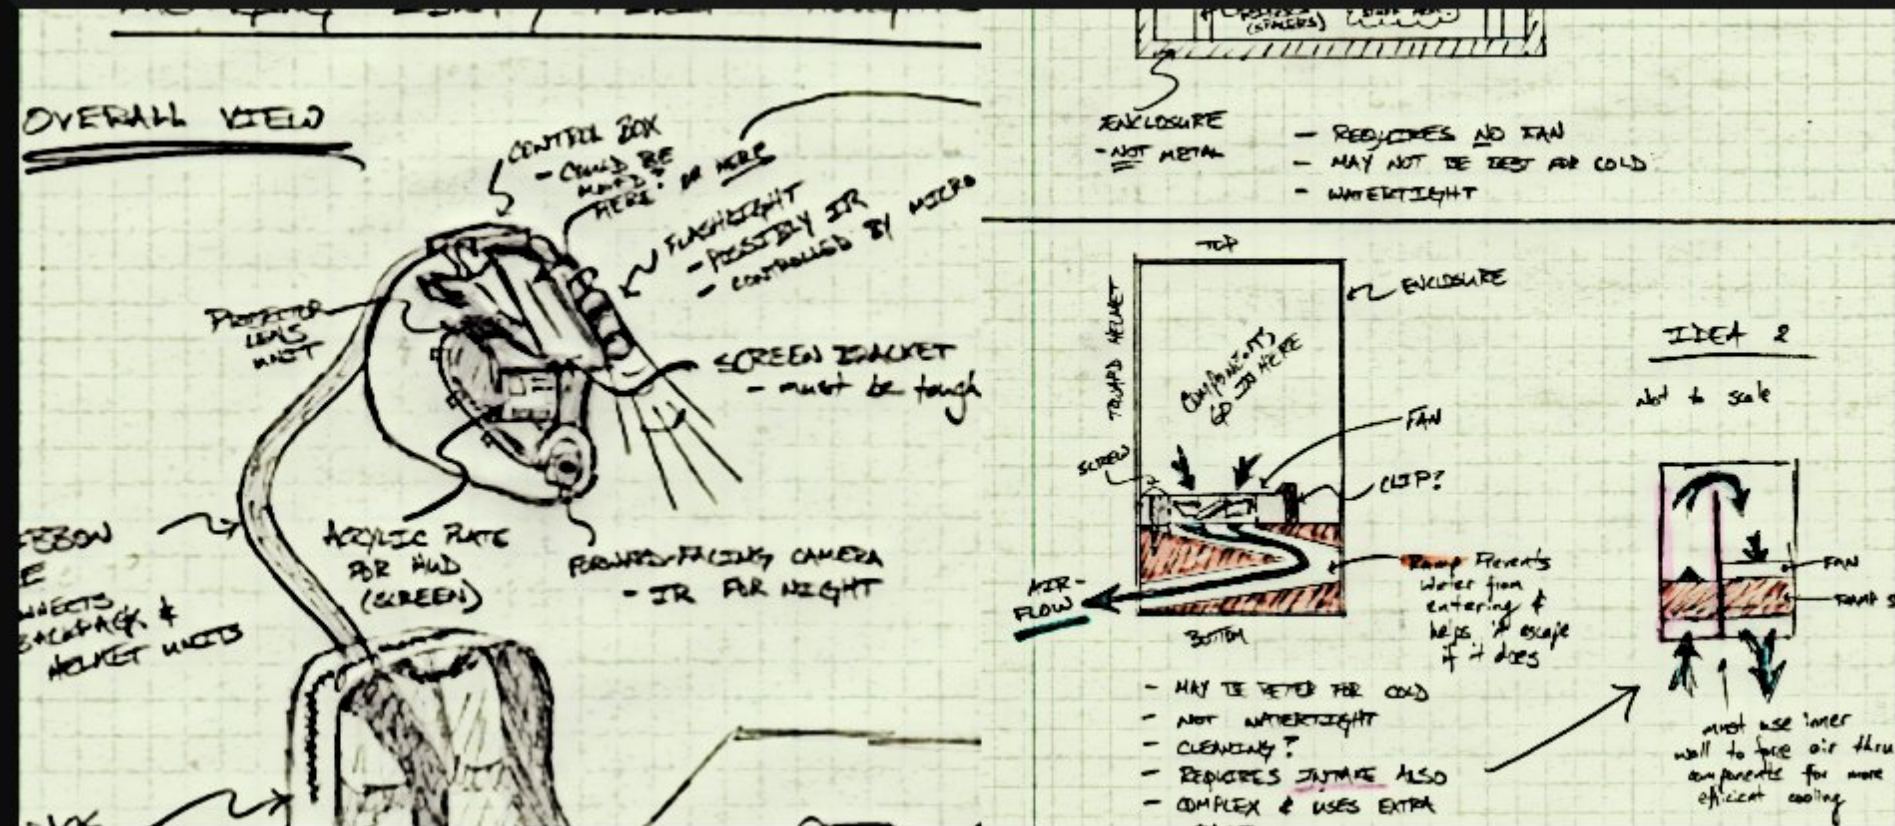 OVERALL VIEW
CONTROL BOX
- COULD BE
HERE? OR HERE
FLASHLIGHT
- POSSIBLY IR
- CONTROLLED BY MICRO
PROJECTOR
LENS
UNIT
SCREEN BRACKET
- must be tough
ACRYLIC PLATE
FOR HUD
(SCREEN)
FORWARD-FACING CAMERA
- IR FOR NIGHT
BACKPACK &
HELMET UNITS
(SPACERS)
ENCLOSURE
- NOT METAL
- REQUIRES NO FAN
- MAY NOT BE BEST FOR COLD
- WATERTIGHT
TOP
TOWARD HELMET
ENCLOSURE
COMPONENTS
GO IN HERE
FAN
SCREW
CLIP?
AIR-
FLOW
Ramp Prevents
Water from
entering &
helps it escape
if it does
BOTTOM
- MAY BE BETER FOR COLD
- NOT WATERTIGHT
- CLEANING?
- REQUIRES INTAKE ALSO
- COMPLEX & USES EXTRA
IDEA 2
Not to scale
FAN
RAMP S
must use inner
wall to force air thru
components for more
efficient cooling